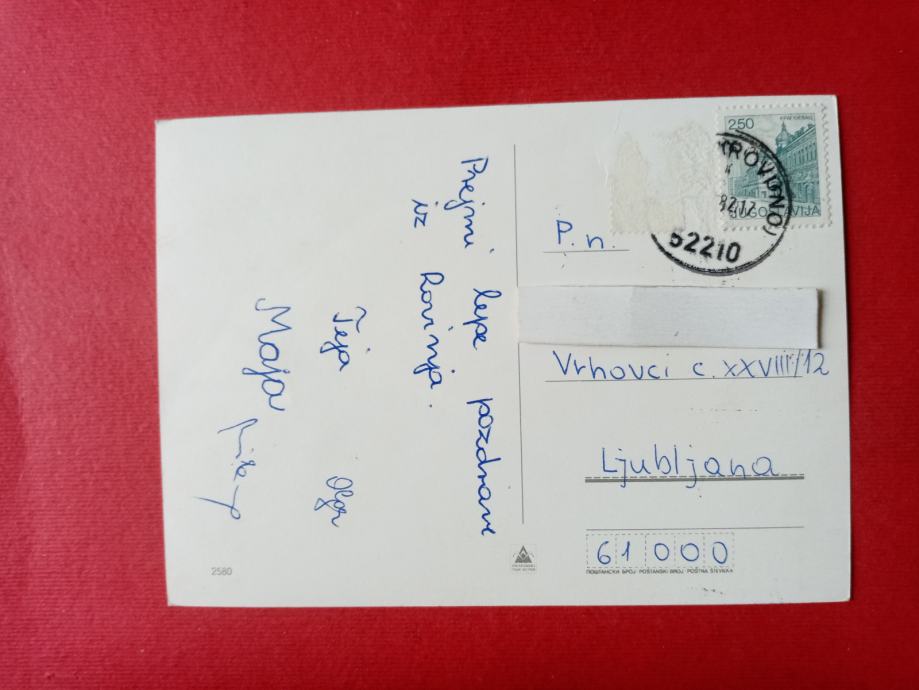 Prejmi lepe pozdrave
iz Rovinja.
Teja
Olga
Maja
2580
250
JUGOSLAVIJA
52210
P. n.
Vrhovci c. XXVIII/12
Ljubljana
61000
ПОШТАНСКИ БРОЈ POŠTANSKI BROJ POŠTNA ŠTEVILKA